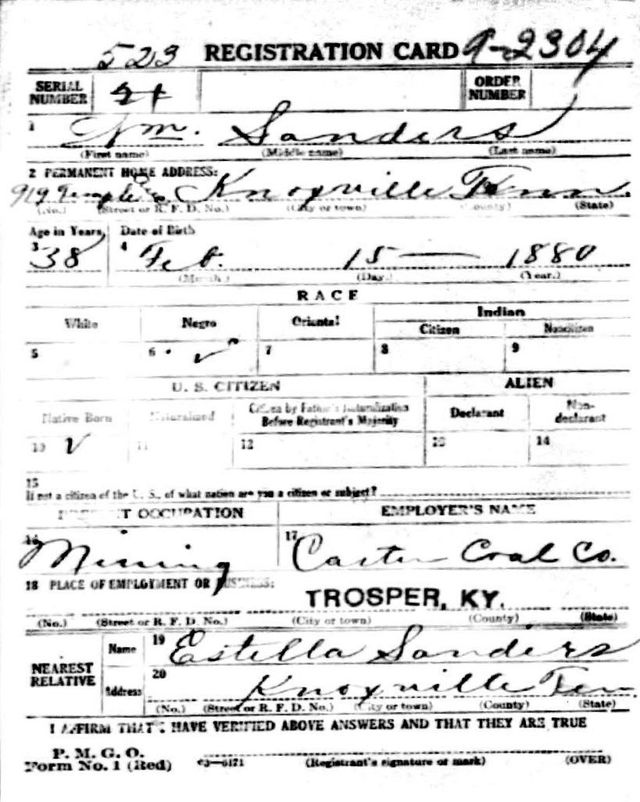 523 REGISTRATION CARD 9-2304
SERIAL NUMBER 24 ORDER NUMBER
1 Wm. Sanders
(First name) (Middle name) (Last name)
2 PERMANENT HOME ADDRESS:
919 Temple Knoxville Tenn.
(No.) (Street or R. F. D. No.) (City or town) (County) (State)
Age in Years Date of Birth
3 38 4 Feb. 15 — 1880
(Month.) (Day.) (Year.)
RACE
White Negro Oriental Indian
Citizen Noncitizen
5 6 ✓ 7 8 9
U. S. CITIZEN ALIEN
Native Born Naturalized Citizen by Father's Naturalization Before Registrant's Majority Declarant Non-declarant
10 ✓ 11 12 13 14
15
If not a citizen of the U. S., of what nation are you a citizen or subject?
PRESENT OCCUPATION EMPLOYER'S NAME
16 Mining 17 Carter Coal Co.
18 PLACE OF EMPLOYMENT OR BUSINESS:
TROSPER, KY.
(No.) (Street or R. F. D. No.) (City or town) (County) (State)
NEAREST RELATIVE
Name 19 Estella Sanders
Address 20 Knoxville Tenn
(No.) (Street or R. F. D. No.) (City or town) (County) (State)
I AFFIRM THAT I HAVE VERIFIED ABOVE ANSWERS AND THAT THEY ARE TRUE
P. M. G. O.
Form No. 1 (Red) 03—6171 (Registrant's signature or mark) (OVER)